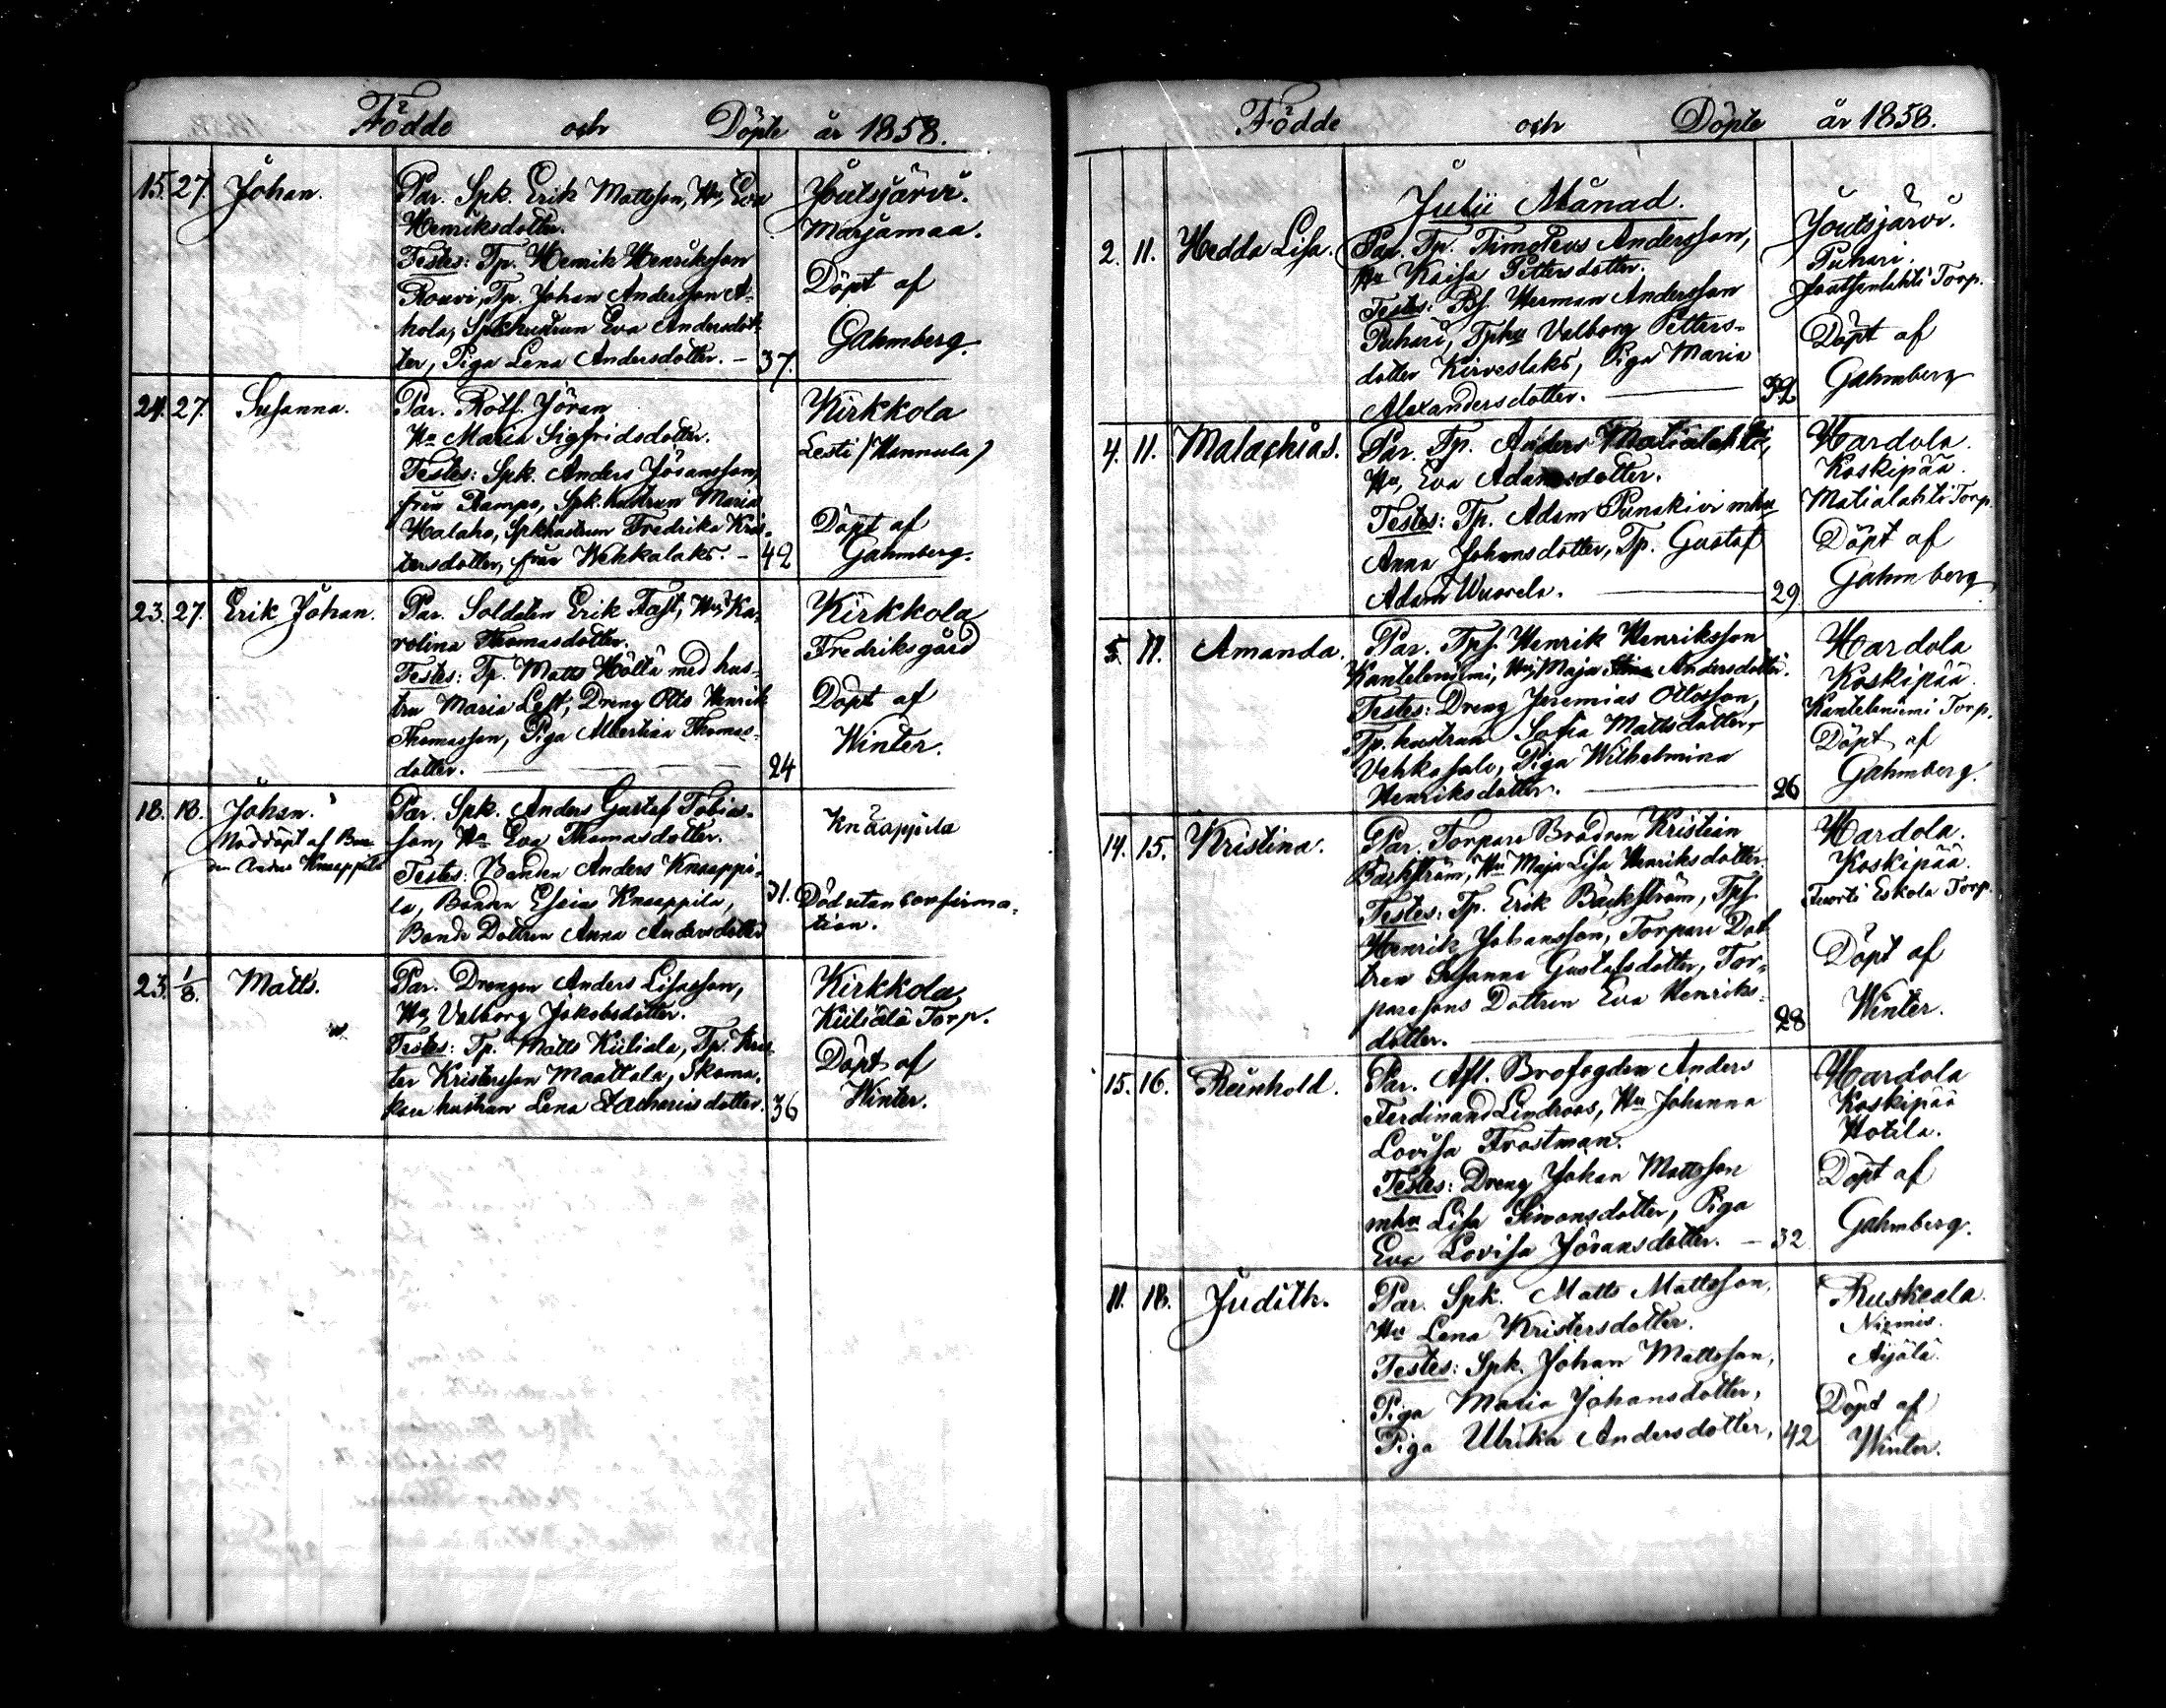 Födde och Döpte år 1858.
15. 27. Johan. Par. Spk. Erik Mattsson, Hu, Eva
Henriksdotter.
Testes: Tp. Henrik Henriksson
Rouvi, Tp. Johan Andersson A-
hola, Spkhustrun Eva Andersdot-
ter, Piga Lena Andersdotter. — 37.
Joutsjärvi.
Marjamaa.
Döpt af
Gahmberg.
24. 27. Susanna. Par. Rotf. Jöran
Hu Maria Sigfridsdotter.
Testes: Spk. Anders Jöransson,
från Rampo, Spk. hustrun Maria
Halaho, Spkhustrun Fredrika Kris-
tersdotter, från Wehkalaks. — 42
Kirkkola
Lesti (Hannula)
Döpt af
Gahmberg.
23. 27. Erik Johan. Par. Soldaten Erik Fast, Hu, Ka-
rolina Thomasdotter.
Testes: Tp. Matts Hölltä med hus-
tru Maria Lest, Dreng Otto Henrik
Thomasson, Piga Albertina Thomas-
dotter. — 24
Kirkkola
Fredriksgård
Döpt af
Winter.
18. 18. Johan. Par. Spk. Anders Gustaf Tobias-
Nöddöpt af Bon-
den Anders Knaappila
son, Hu Eva Thomasdotter.
Testes: Bonden Anders Knaappi-
la, Bonden Esaias Knaappila, 31.
Bonde Dottren Anna Andersdotter
Knaappila
Död utan confirma-
tion.
23. 1/8. Matts. Par. Drengen Anders Lisasson,
Hu, Valborg Jakobsdotter.
Testes: Tp. Matts Kiiliälä, Tp. Kris-
ter Kristersson Maattala, Skoma-
kare hustrun Lena Zachariasdotter. 36
Kirkkola
Kiiliälä Torp.
Döpt af
Winter.
Födde och Döpte år 1858.
Julii Månad.
2. 11. Hedda Lisa. Par. Tp. Timoteus Andersson,
Hu Kaisa Pettersdotter.
Testes: Bf. Herman Andersson
Puhari, Tphu Valborg Petters-
dotter Kirveslaks, Piga Maria
Alexandersdotter. — 32
Joutsjärvi.
Puhari.
Joutsenlahti Torp.
Döpt af
Gahmberg
4. 11. Malachias. Par. Tp. Anders Matialahti,
Hu, Eva Adamsdotter.
Testes: Tp. Adam Punakivi mhu
Anna Johansdotter, Tp. Gustaf
Adam Wuorela. — 29
Hardola.
Koskipää.
Matialahti Torp.
Döpt af
Gahmberg
5. 11. Amanda. Par. Tpf. Henrik Henriksson
Kanteleniemi, Hu, Maja Stina Andersdotter.
Testes: Dreng Jeremias Ottosson,
Tp. hustrun Sofia Mattsdotter,
Vehkasalo, Piga Wilhelmina
Henriksdotter. — 26
Hardola
Koskipää.
Kanteleniemi Torp.
Döpt af
Gahmberg.
14. 15. Kristina. Par. Torpare Brodren Kristian
Bäckström, Hu Maja Lisa Henriksdotter.
Testes: Tp. Erik Bäckström, Tpf.
Henrik Johansson, Torpare Dot
tren Susanna Gustafsdotter, Tor-
paresons Dottren Eva Henriks-
dotter. — 28
Hardola.
Koskipää.
Tuorti Eskola Torp.
Döpt af
Winter.
15. 16. Reinhold. Par. Afl. Brofogden Anders
Ferdinand Lindroos, Hu Johanna
Lovisa Frostman.
Testes: Dreng Johan Mattsson
mhu Lisa Simonsdotter, Piga
Eva Lovisa Jöransdotter. — 32
Hardola
Koskipää
Hotila.
Döpt af
Gahmberg.
11. 18. Judith. Par. Spk. Matts Mattsson,
Hu Lena Kristersdotter.
Testes: Spk. Johan Mattsson,
Piga Maria Johansdotter,
Piga Ulrika Andersdotter, 42
Ruskeala.
Niemis.
Äijälä.
Döpt af
Winter.